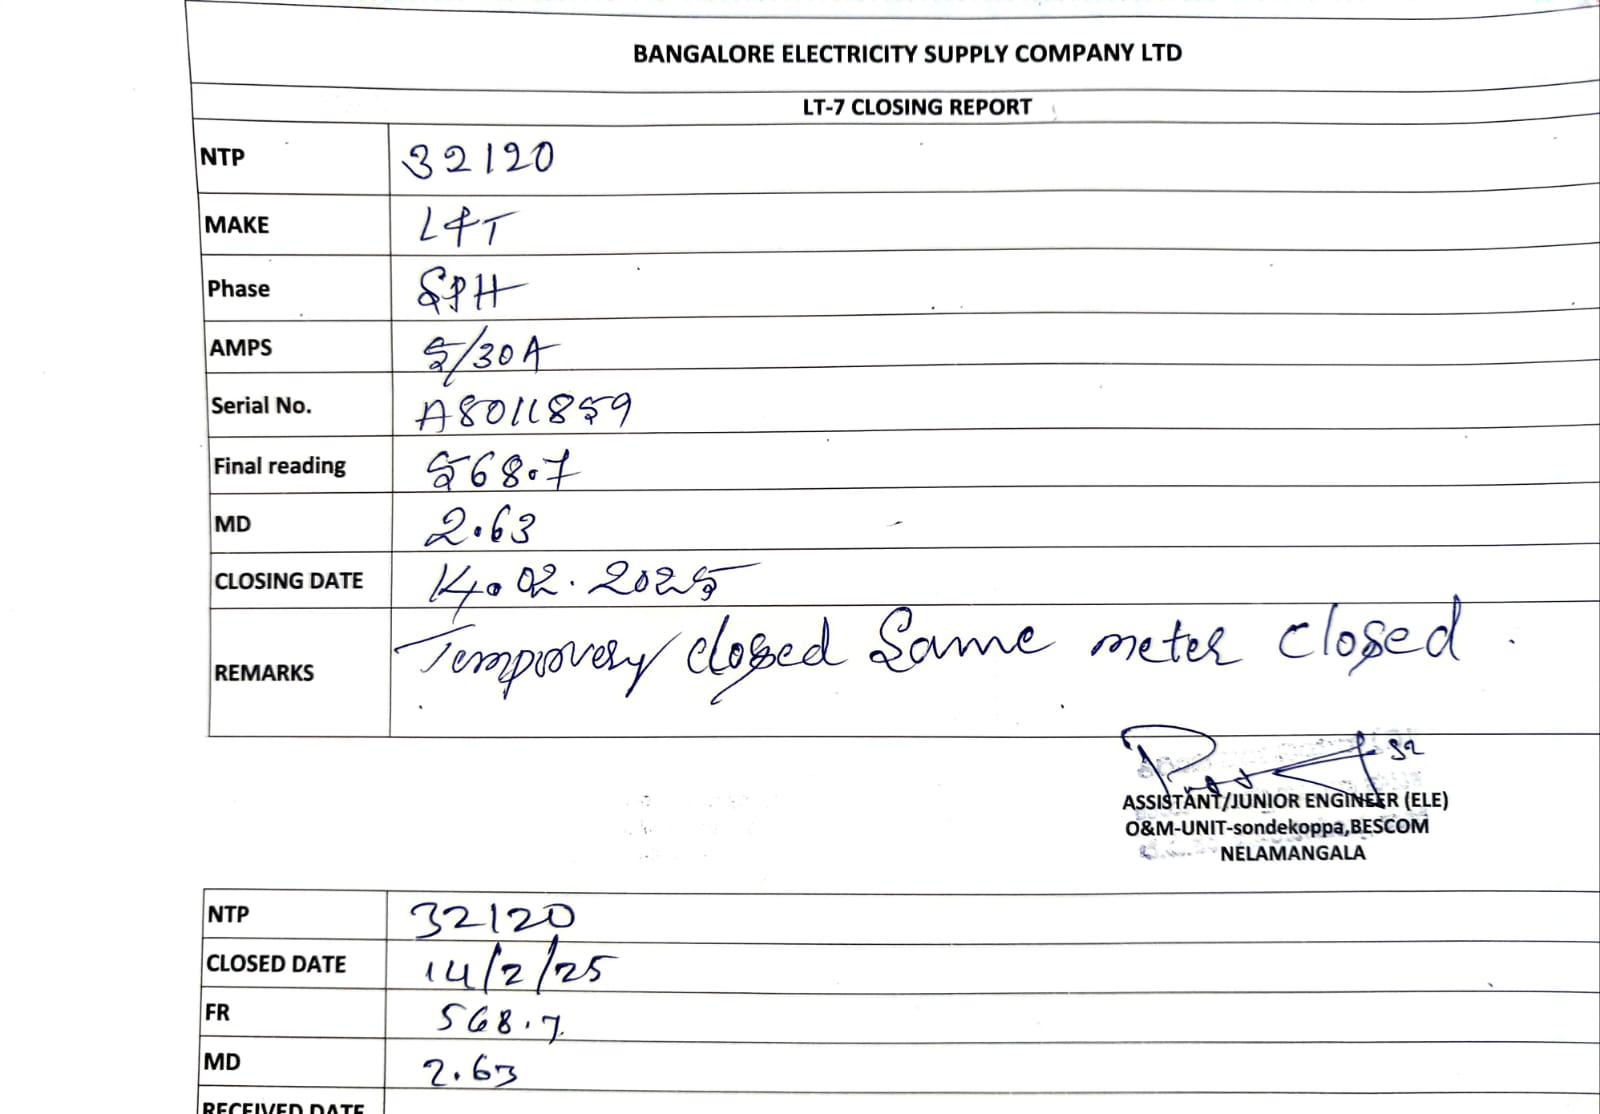 BANGALORE ELECTRICITY SUPPLY COMPANY LTD
LT-7 CLOSING REPORT
NTP 32120
MAKE L&T
Phase SPH
AMPS 5/30A
Serial No. A8011859
Final reading 568.7
MD 2.63
CLOSING DATE 14.02.2025
REMARKS Temporery closed Same meter closed.
ASSISTANT/JUNIOR ENGINEER (ELE)
O&M-UNIT-sondekoppa,BESCOM
NELAMANGALA
NTP 32120
CLOSED DATE 14/2/25
FR 568.7
MD 2.63
RECEIVED DATE